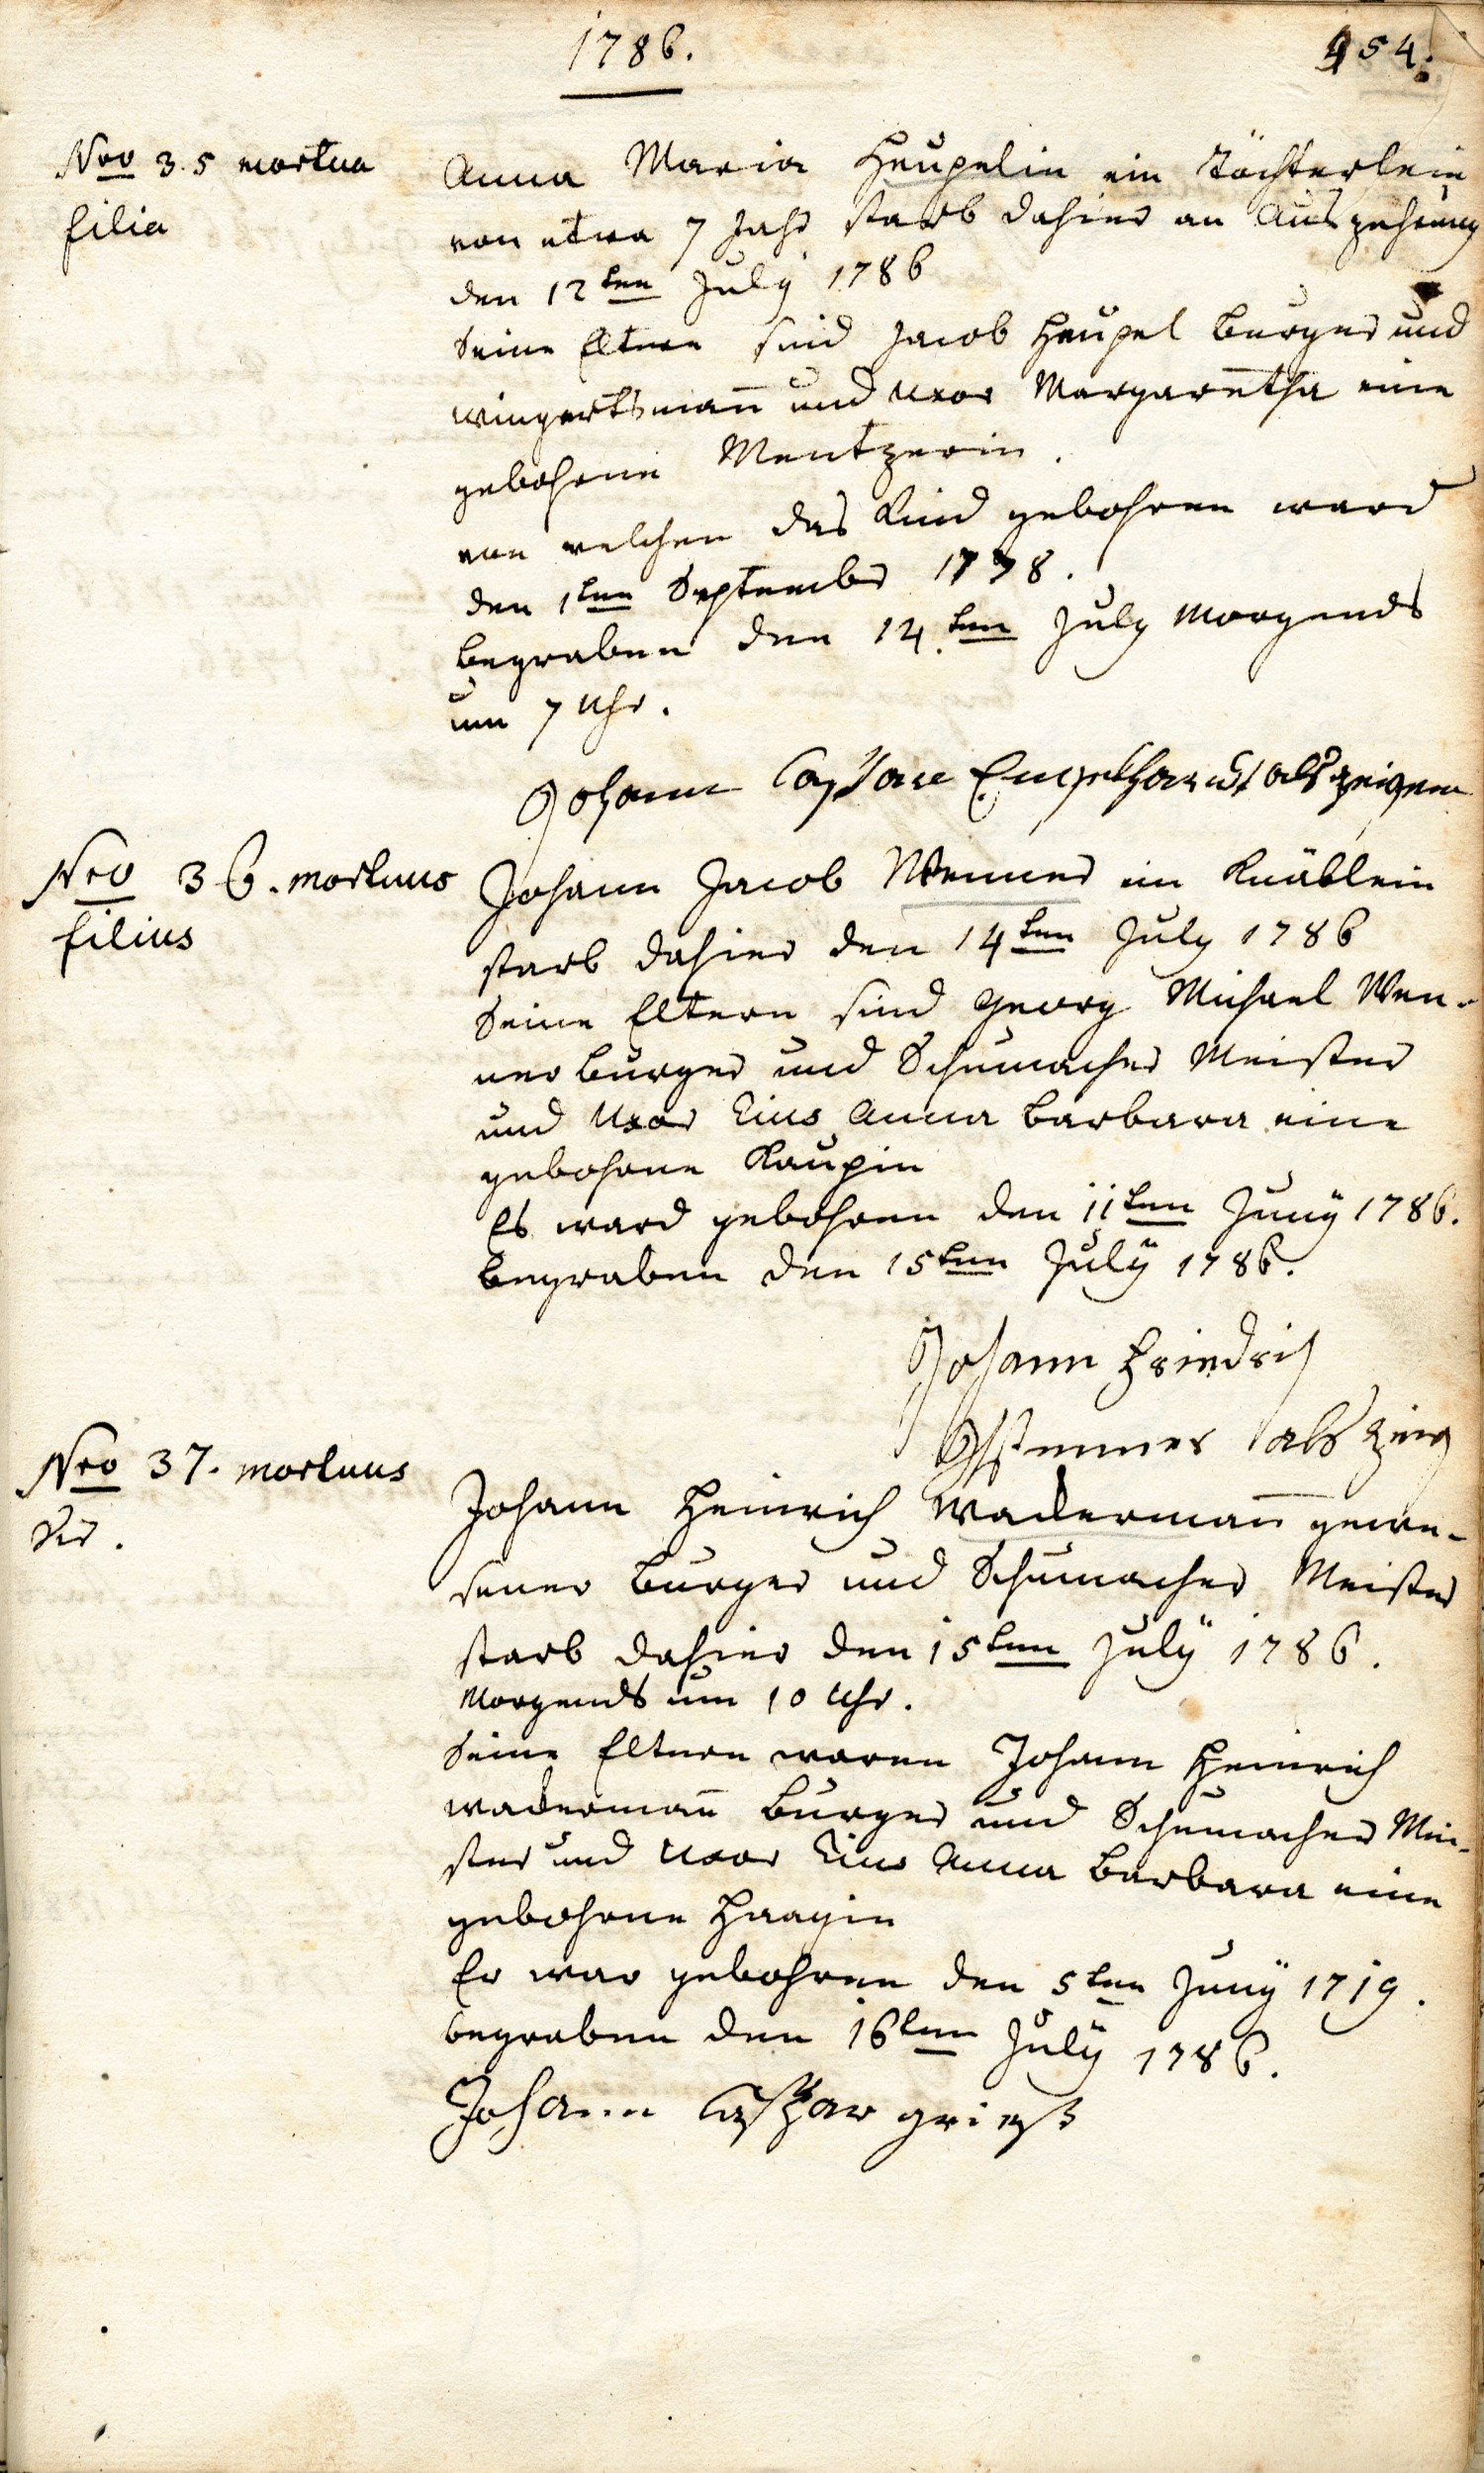 1786.
454.
Nro 35 mortua
filia
Anna Maria Heupelin ein Töchterlein
von etwa 7 Jahr starb dahier an Auszehrung
den 12ten July 1786
Seine Eltern sind Jacob Heupel burger und
wingertsman̄ und uxor Margaretha eine
gebohrne Mentzerin.
von welchen das Kind gebohren ward
den 1ten September 1778.
begraben den 14.ten July Morgends
um 7 Uhr.
Johann Caspare Engelhardt als zeigen
Nro 36. mortuus
filius
Johann Jacob Wenner ein Knäblein
starb dahier den 14ten July 1786
Seine Eltern sind Georg Michael Wen-
ner burger und Schumacher Meister
und Uxor Eius Anna Barbara eine
gebohrne Kaupin
Es ward gebohren den 11ten Juny 1786.
begraben den 15ten Julÿ 1786.
Johann Friedrich
als Zeug
Nro 37. mortuus
Vir.
Johann Heinrich Waderman̄ gewe-
sener burger und Schumacher Meister
starb dahier den 15ten Julÿ 1786.
Morgends um 10 Uhr.
Seine Eltern waren Johann Heinrich
waderman̄ burger und Schumacher Mei-
ster und Uxor Eius Anna Barbara eine
gebohrne Haagin
Er war gebohren den 5ten Junÿ 1719.
begraben den 16ten Julÿ 1786.
Johann Casper grieß